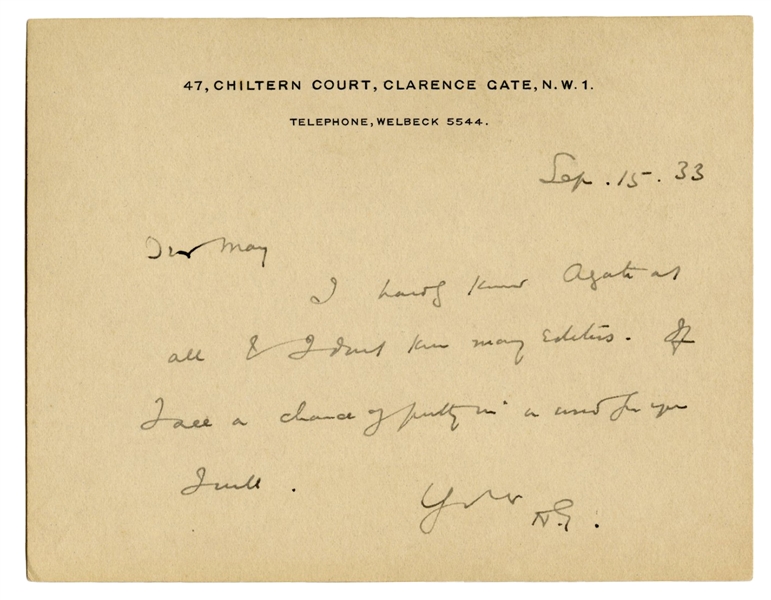 47, CHILTERN COURT, CLARENCE GATE, N.W.1.
TELEPHONE, WELBECK 5544.
Sep. 15. 33
Dear May
I hardly know Agate at
all & I don't know many Editors. If
I see a chance of putting in a word for you
I will.
Yours